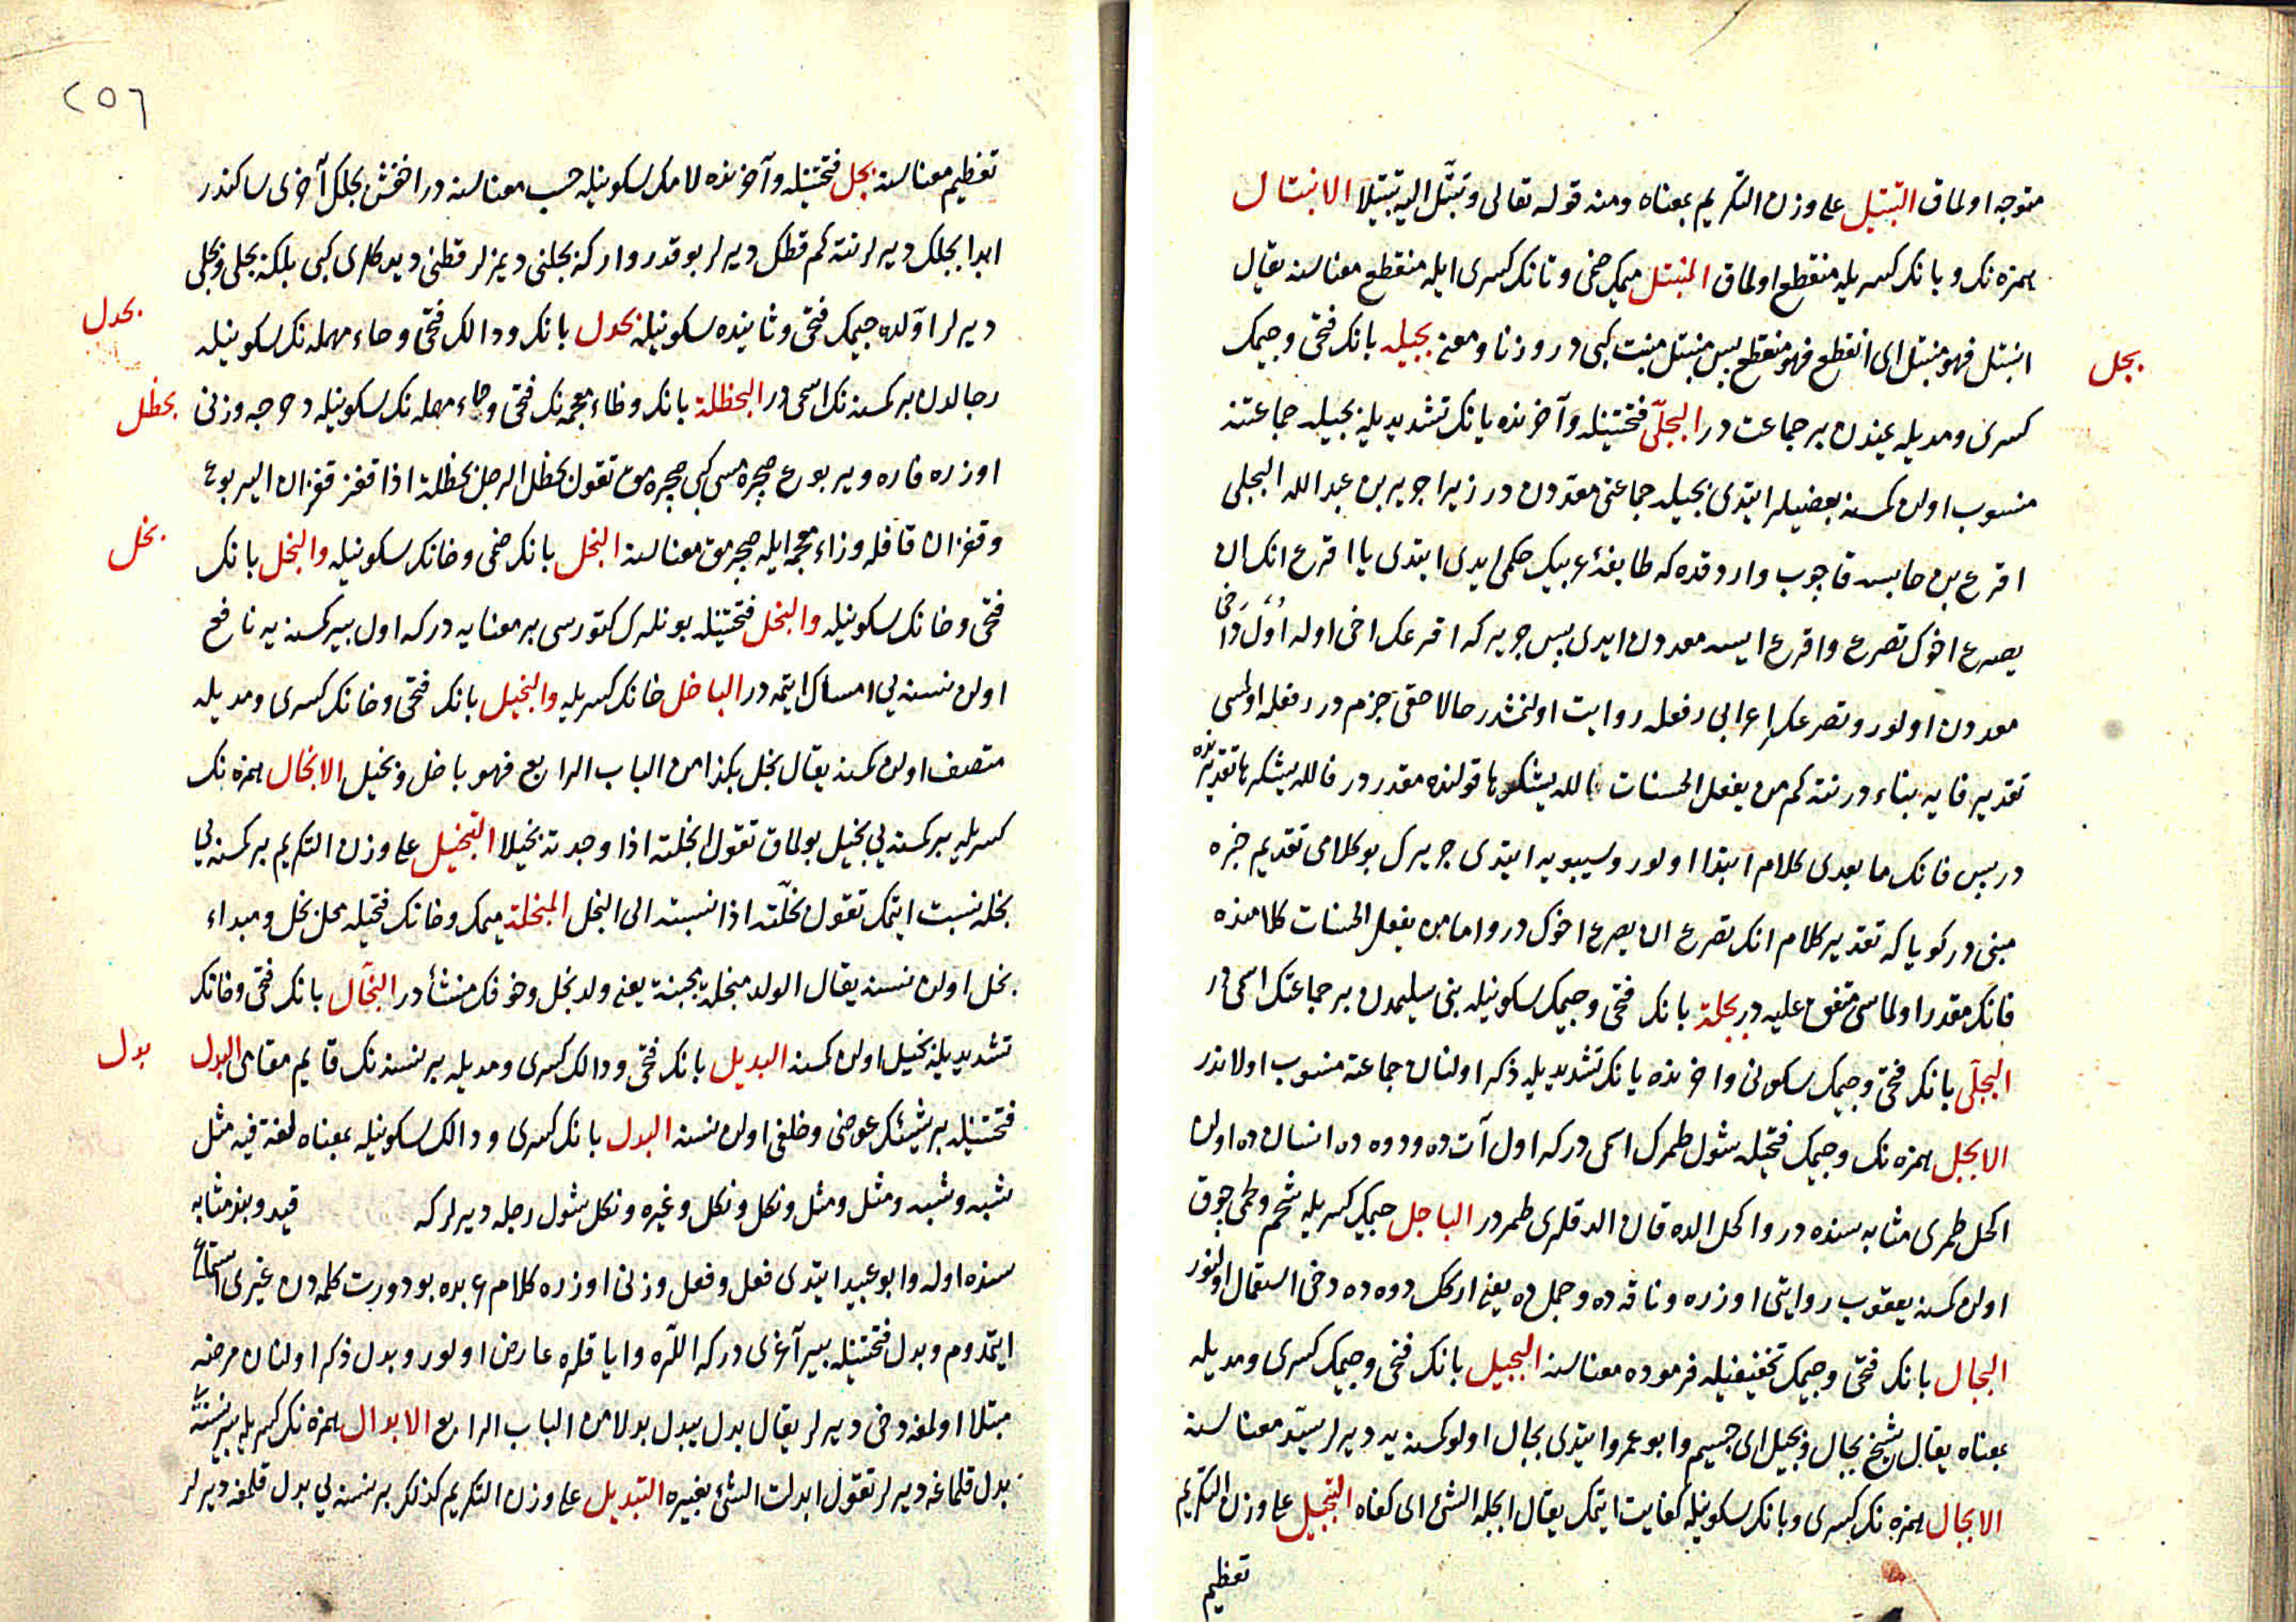 متوجه اولماق التبتيل على وزن التكريم بمعناه ومنه قوله تعالى وتبتّل اليه تبتيلا الانبتال
همزه نك و بانك كسريله منقطع اولماق المنبتل ميمك ضمى و تانك كسرى ايله منقطع معناسنه يقال
انبتل فهو منبتل اى انقطع فهو منقطع پس منبتل منبت كبى در وزنا و معنى بجيله بانك فتحى و جيمك
بجل
كسرى و مديله يمندن بر جماعت در البجلّى فتحتينله و آخرنده يانك تشديديله بجيله جماعتنه
منسوب اولن كمسنه بعضيلر ايتدى بجيله جماعتى معددن در زيرا جرير بن عبد الله البجلى
اقرع بن حابسه قاجوب واردقده كه طايفۀ عربيك حكمى ايدى ايتدى يا اقرع انك ان
يصرع اخوك تصرع و اقرع ايسه معددن ايدى پس جرير كه اقرعك اخى اوله اول دخى
معددن اولور و تصرعك اعرابى رفعله روايت اولنمشدر حالا حقى جزم در رفعله اولمسى
تقدير فايه بناء در نته كم من يفعل الحسنات الله يشكرها قولنده مقدر در فالله يشكرها تقديرنده
در پس فانك ما بعدى كلام ابتدا اولور و سيبويه ايتدى جريرك بو كلامى تقديم خبره
مبنى در كويا كه تقدير كلام انك تصرع ان يصرع اخوك در و اما من يفعل الحسنات كلامنده
فانك مقدر اولماسى متفق عليه در بجلة بانك فتحى و جيمك سكونيله بنى سليمدن بر جماعتك اسمى در
البجلى بانك فتحى و جيمك سكونى و اخرنده يانك تشديديله ذكر اولنان جماعته منسوب اولاندر
الابجل همزه نك و جيمك فتحيله شول طمرك اسمى در كه اول آت ده و دوه ده انسان ده اولن
اكحل طمرى مثابه سنده در و اكحل الده قان الدقلرى طمر در الباجل جيمك كسريله شحم و لحمى چوق
اولن كمسنه يعقوب روايتى اوزره و ناقه ده و جمل ده يعنى اركك دوه ده دخى استعمال اولنور
البجال بانك فتحى و جيمك تخفيفيله فرموده معناسنه البجيل بانك فتحى و جيمك كسرى و مديله
بمعناه يقال شيخ بجال و بجيل اى جسيم و ابو عمرو ايتدى بجال اولو كمسنه يه ديرلر سيّد معناسنه
الابجال همزه نك كسرى و بانك سكونيله كفايت ايتمك يقال ابجله الشئ اى كفاه التبجيل على وزن التكريم
تعظيم
٢٥٦
تعظيم معناسنه بجل فتحتينله و آخرنده لامك سكونيله حسب معناسنه در اخفش بجلك آخرى ساكندر
ابدا بجلك ديرلر نته كم قطك ديرلر بو قدر وار كه بجلنى ديمزلر قطنى ديدكلرى كبى بلكه بجلى و بجلى
ديرلر اوّلده جيمك فتحى و ثانيده سكونيله بحدل بانك و دالك فتحى و حاء مهمله نك سكونيله
بحدل
رجالدن بر كمسنه نك اسمى در البحظلة بانك و ظاء معجمه نك فتحى و حاء مهمله نك سكونيله دحرجه وزنى
بحظل
اوزره فاره و يربوع صچره مسى كبى صچره مق تقول بحظل الرجل بحظلة اذا قفز قفزان اليربوع
و قفزان قافله و زاء معجمه ايله صچرمق معناسنه البخل بانك ضمى و خانك سكونيله والبخل بانك
بخل
فتحى و خانك سكونيله والبخل فتحتينله بونلرك كتورسى بر معنايه در كه اول بير كمسنه يه نافع
اولن نسنه يى امساك ايتمه در الباخل خانك كسريله والبخيل بانك فتحى و خانك كسرى و مديله
متصف اولن كمسنه يقال بخل بكذا من الباب الرابع فهو باخل و بخيل الابخال همزه نك
كسريله بر كمسنه يى بخيل بولماق تقول ابخلته اذا وجدته بخيلا التبخيل على وزن التكريم بر كمسنه يى
بخله نسبت ايتمك تقول بخّلته اذا نسبته الى البخل المبخلة ميمك و خانك فتحيله محل بخل و مبداء
بخل اولن نسنه يقال الولد مبخلة مجبنة يعنى ولد بخل و خوفك منشأ در البخّال بانك فتحى و خانك
تشديديله بخيل اولن كمسنه البديل بانك فتحى و دالك كسرى و مديله بر نسنه نك قايم مقامى البدل
بدل
فتحتينله بر شيئك عوضى و خلفى اولن نسنه البدل بانك كسرى و دالك سكونيله بمعناه لغة فيه مثل
شبه و شبه و مثل و مثل و نكل و نكل و غيره و نكل شول رجله ديرلر كه قيد و بند مثابه
سنده اوله و ابو عبيد ايتدى فعل و فعل وزنى اوزره كلام عربده بو دورت كلمه دن غيرى استماع
ايتمدوم و بدل فتحتينله بير آغرى در كه اللره و اياقلره عارض اولور و بدل ذكر اولنان مرضه
مبتلا اولمغه دخى ديرلر يقال بدل يبدل بدلا من الباب الرابع الابدال همزه نك كسريله بير نسنه يى
بدل قلماغه ديرلر تقول ابدلت الشئ بغيره التبديل على وزن التكريم كذلك بر نسنه يى بدل قلمغه ديرلر